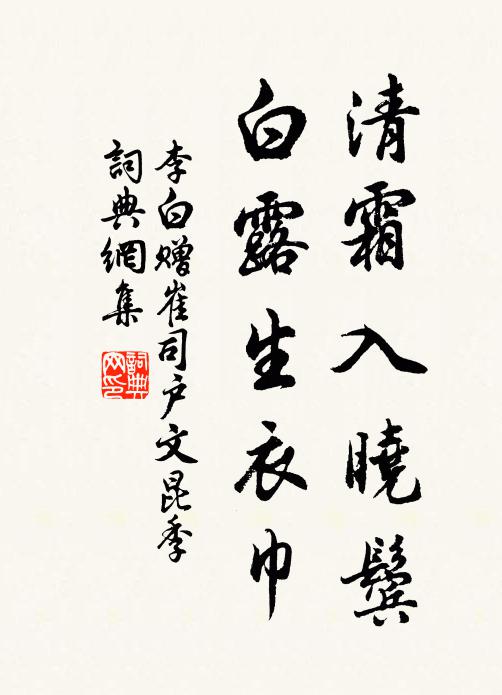 清霜入曉鬢
白露生衣巾
李白贈崔司戶文昆季
詞典網集
詞典网印